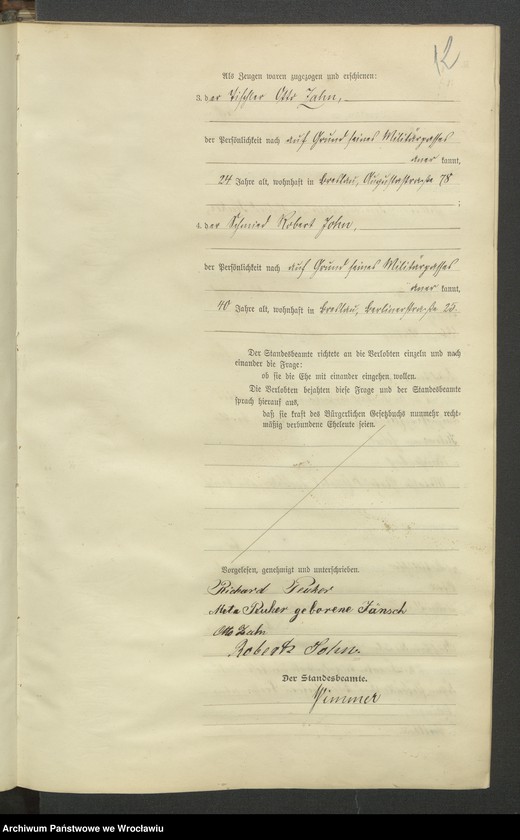 12
Als Zeugen waren zugezogen und erschienen:
3. der Tischler Otto Zahn,
der Persönlichkeit nach auf Grund seines Militärpasses
aner kannt,
24 Jahre alt, wohnhaft in Breslau, Augustastraße 78
;
4. der Schmied Robert John,
der Persönlichkeit nach auf Grund seines Militärpasses
aner kannt,
40 Jahre alt, wohnhaft in Breslau, Berlinerstraße 25.
Der Standesbeamte richtete an die Verlobten einzeln und nach
einander die Frage:
ob sie die Ehe mit einander eingehen wollen.
Die Verlobten bejahten diese Frage und der Standesbeamte
sprach hierauf aus,
daß sie kraft des Bürgerlichen Gesetzbuchs nunmehr recht-
mäßig verbundene Eheleute seien.
Vorgelesen, genehmigt und unterschrieben.
Richard Peuker
Meta Peuker geborene Jänsch
Otto Zahn
Robert John
Der Standesbeamte.
Wimmer
Archiwum Państwowe we Wrocławiu